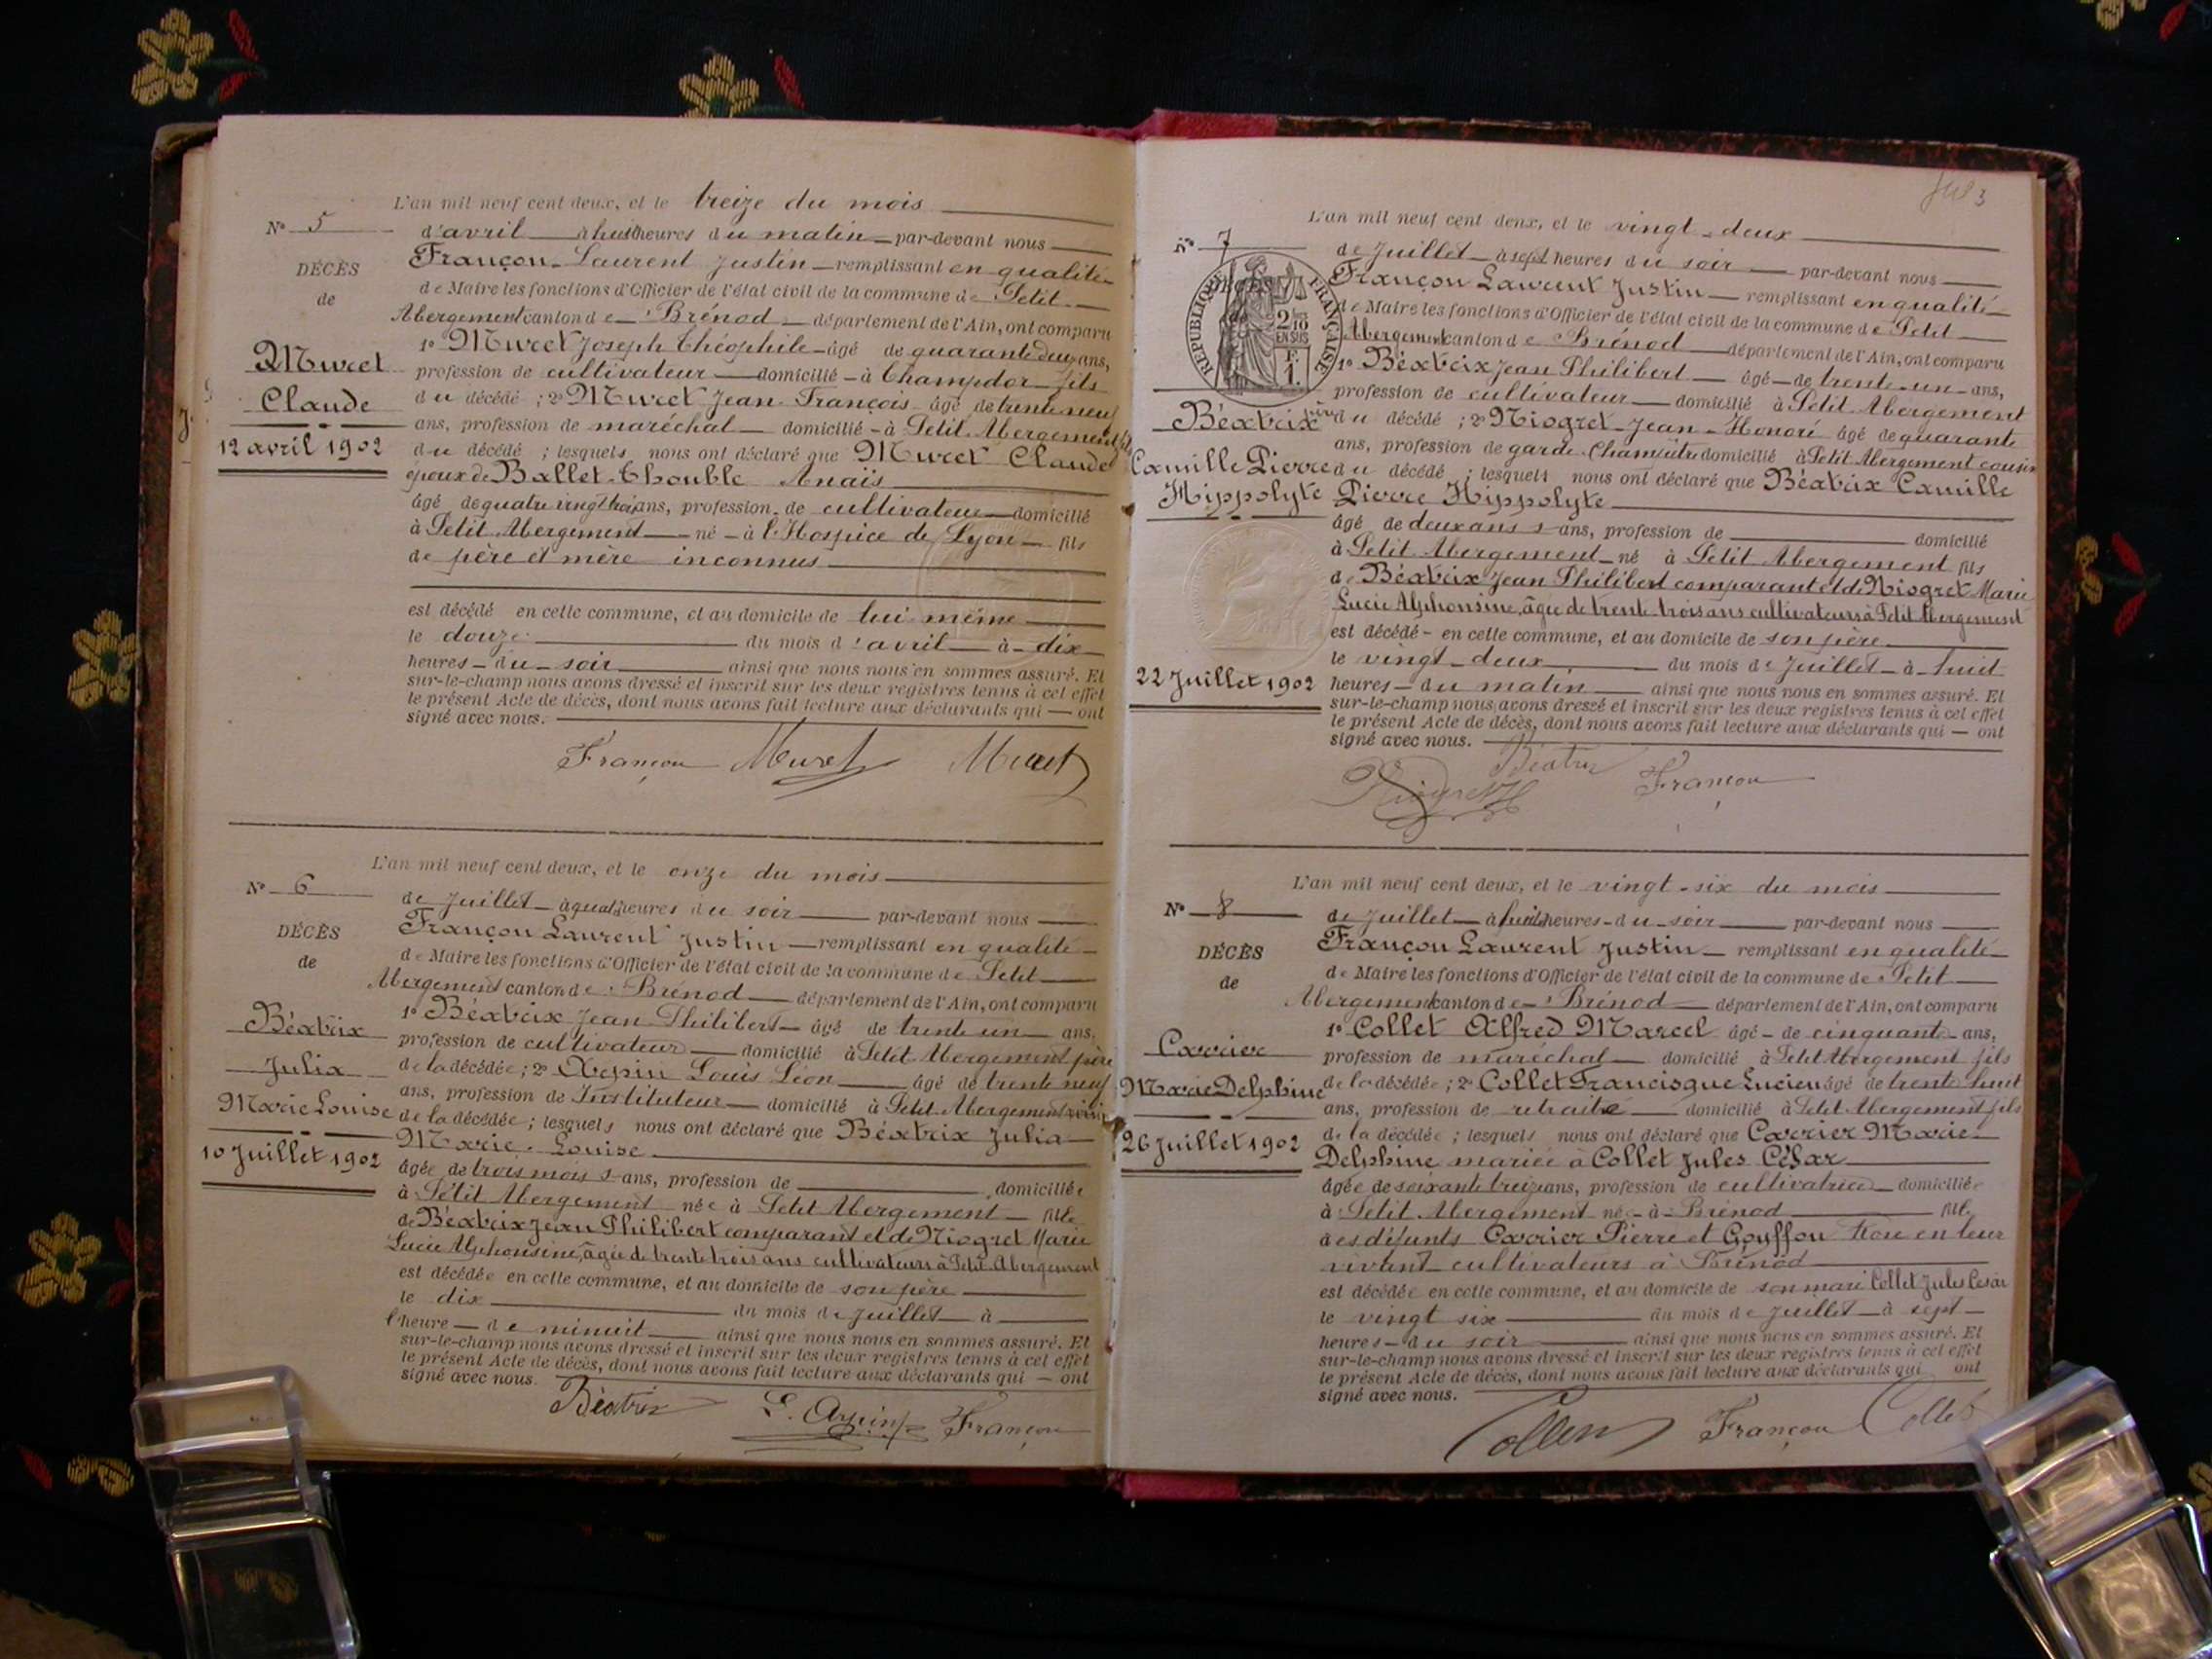 L'an mil neuf cent deux, et le treize du mois
N° 5
d'avril à huit heures du matin par-devant nous
DÉCÈS
Françon Laurent Justin remplissant en qualité
de
de Maire les fonctions d'Officier de l'état civil de la commune de Petit
Abergement canton de Brénod département de l'Ain, ont comparu
Muret
1° Muret Joseph Théophile âgé de quarante deux ans,
profession de cultivateur domicilié à Champdor fils
Claude
du décédé ; 2° Muret Jean François âgé de trente neuf
ans, profession de maréchal domicilié à Petit Abergement fils
12 avril 1902
du décédé ; lesquels nous ont déclaré que Muret Claude
époux de Ballet Thouble Anaïs
âgé de quatre vingt trois ans, profession de cultivateur domicilié
à Petit Abergement né à l'Hospice de Lyon fils
de père et mère inconnus
est décédé en cette commune, et au domicile de lui même
le douze du mois d'avril à dix
heures du soir ainsi que nous nous en sommes assuré. Et
sur-le-champ nous avons dressé et inscrit sur les deux registres tenus à cet effet
le présent Acte de décès, dont nous avons fait lecture aux déclarants qui ont
signé avec nous.
Françon Muret Muret
L'an mil neuf cent deux, et le onze du mois
N° 6
de Juillet à quatre heures du soir par-devant nous
DÉCÈS
Françon Laurent Justin remplissant en qualité
de
de Maire les fonctions d'Officier de l'état civil de la commune de Petit
Abergement canton de Brénod département de l'Ain, ont comparu
Béatrix
1° Béatrix Jean Philibert âgé de trente un ans,
profession de cultivateur domicilié à Petit Abergement père
Julia
de la décédée ; 2° Arpin Louis Léon âgé de trente neuf
ans, profession de Instituteur domicilié à Petit Abergement voisin
Marie Louise
de la décédée ; lesquels nous ont déclaré que Béatrix Julia
Marie Louise
10 Juillet 1902
âgée de trois mois ans, profession de domiciliée
à Petit Abergement née à Petit Abergement fille
de Béatrix Jean Philibert comparant et de Niogret Marie
Lucie Alphonsine, âgée de trente trois ans cultivateurs à Petit Abergement
est décédée en cette commune, et au domicile de son père
le dix du mois de Juillet à
l'heure de minuit ainsi que nous nous en sommes assuré. Et
sur-le-champ nous avons dressé et inscrit sur les deux registres tenus à cet effet
le présent Acte de décès, dont nous avons fait lecture aux déclarants qui ont
signé avec nous.
Béatrix L. Arpin Françon
L'an mil neuf cent deux, et le vingt-deux
N° 7
de Juillet à sept heures du soir par-devant nous
RÉPUBLIQUE FRANÇAISE
2/10 EN SUS
1F. 1.
Françon Laurent Justin remplissant en qualité
de Maire les fonctions d'Officier de l'état civil de la commune de Petit
Abergement canton de Brénod département de l'Ain, ont comparu
1° Béatrix Jean Philibert âgé de trente-un ans,
profession de cultivateur domicilié à Petit Abergement
Béatrix
père du décédé ; 2° Niogret Jean Honoré âgé de quarante
ans, profession de garde Champêtre domicilié à Petit Abergement cousin
Camille Pierre
du décédé ; lesquels nous ont déclaré que Béatrix Camille
Hippolyte
Pierre Hippolyte
âgé de deux ans ans, profession de domicilié
à Petit Abergement né à Petit Abergement fils
de Béatrix Jean Philibert comparant et de Niogret Marie
Lucie Alphonsine, âgée de trente trois ans cultivateurs à Petit Abergement
est décédé en cette commune, et au domicile de son père
le vingt-deux du mois de Juillet à huit
22 Juillet 1902
heures du matin ainsi que nous nous en sommes assuré. Et
sur-le-champ nous avons dressé et inscrit sur les deux registres tenus à cet effet
le présent Acte de décès, dont nous avons fait lecture aux déclarants qui ont
signé avec nous.
Béatrix
Niogret Françon
L'an mil neuf cent deux, et le vingt-six du mois
N° 8
de Juillet à huit heures du soir par-devant nous
DÉCÈS
Françon Laurent Justin remplissant en qualité
de
de Maire les fonctions d'Officier de l'état civil de la commune de Petit
Abergement canton de Brénod département de l'Ain, ont comparu
1° Collet Alfred Marcel âgé de cinquante ans,
Carrier
profession de maréchal domicilié à Petit Abergement fils
Marie Delphine
de la décédée ; 2° Collet Francisque Lucien âgé de trente huit
ans, profession de retraité domicilié à Petit Abergement fils
26 Juillet 1902
de la décédée ; lesquels nous ont déclaré que Carrier Marie
Delphine mariée à Collet Jules César
âgée de soixante treize ans, profession de cultivatrice domiciliée
à Petit Abergement née à Brénod fille
des défunts Carrier Pierre et Gouffon en leur
vivant cultivateurs à Brénod
est décédée en cette commune, et au domicile de son mari Collet Jules César
le vingt six du mois de Juillet à sept
heures du soir ainsi que nous nous en sommes assuré. Et
sur-le-champ nous avons dressé et inscrit sur les deux registres tenus à cet effet
le présent Acte de décès, dont nous avons fait lecture aux déclarants qui ont
signé avec nous.
Collet Françon Collet